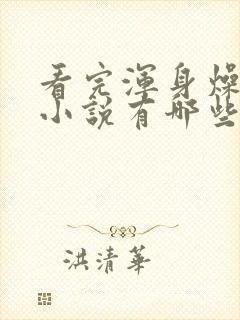 看完渾身燥
小說有哪些
洪清華